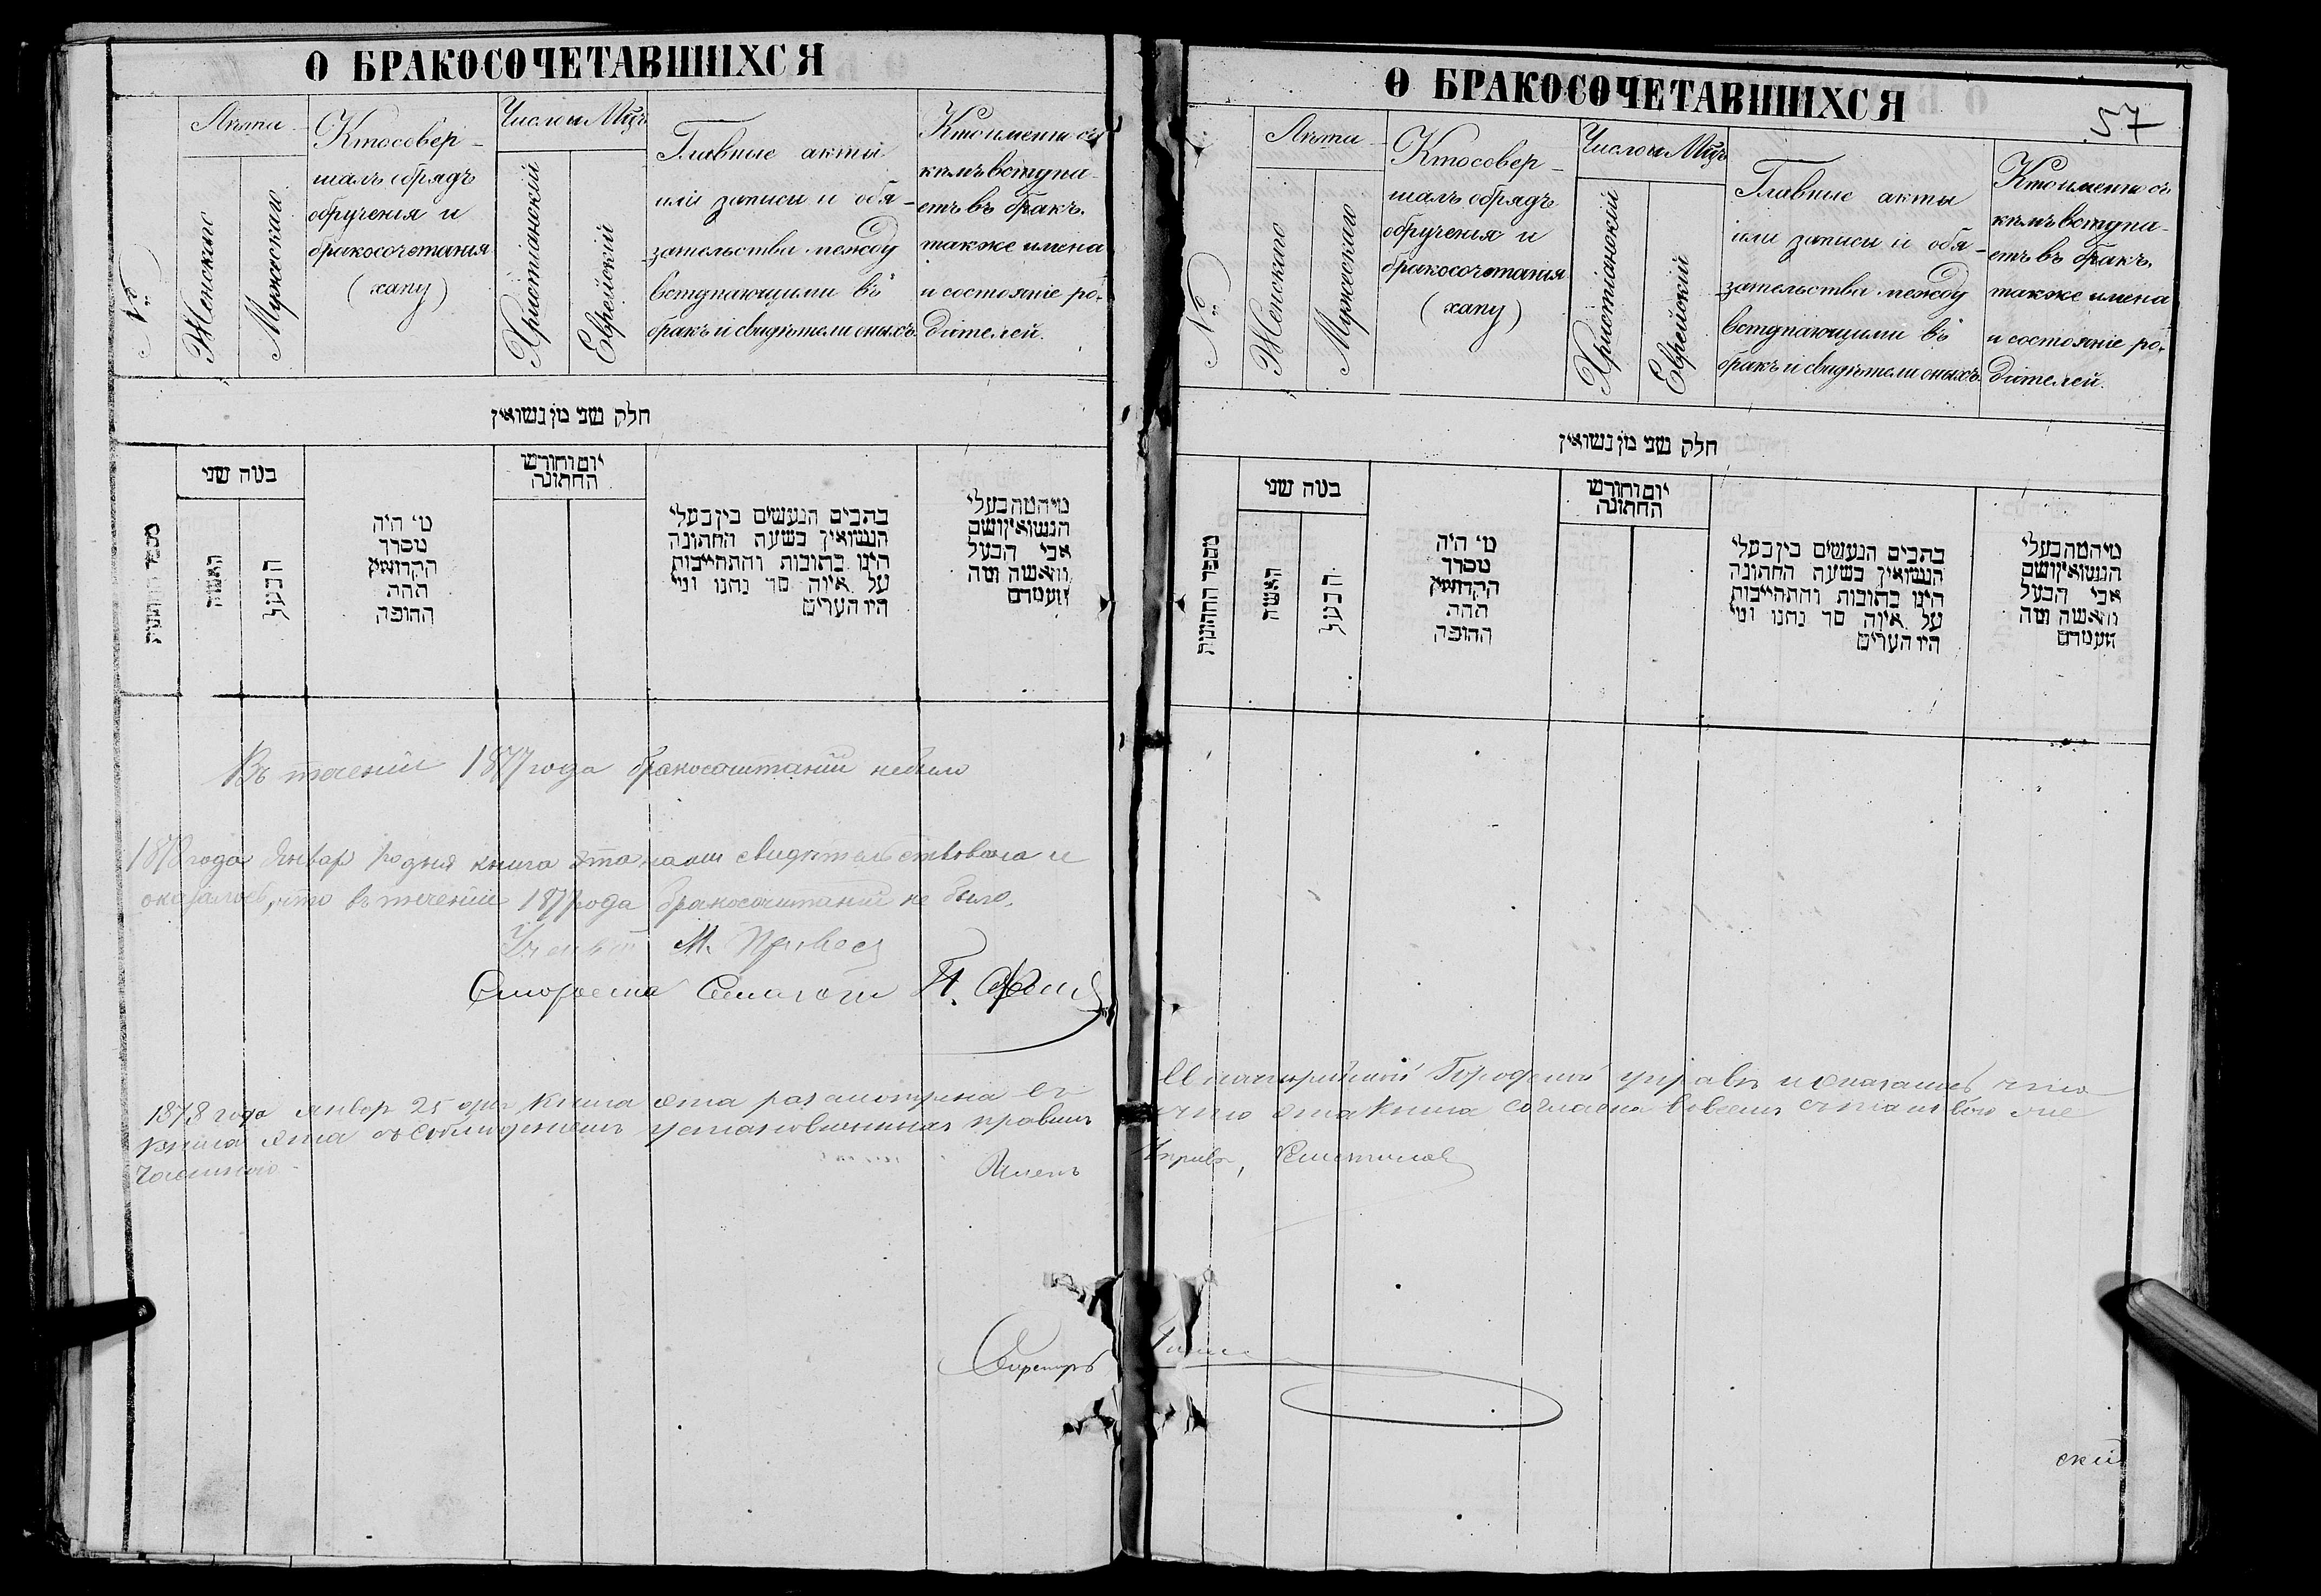 О БРАКОСОЧЕТАВШИХСЯ
№
Лѣта
Женскаго
Мужескаго
Кто совер-
шалъ обрядъ
обрученія и
бракосочетанія
(хапу)
Число и Мцъ
Христіанскій
Еврейскій
Главные акты
или записи и обя-
зательства между
вступающими въ
бракъ и свидѣтели оныхъ.
Кто именно съ
кѣмъ вступа-
етъ въ бракъ.
также имена
и состояніе ро-
дителей.
חלק שני מן נשואין
מספר החתונות
במה שני
האשה
הבעל
מי היה
מסדר
הקדושין
תחת
החופה
יום וחודש
החתונה
כתבים הנעשים בין בעלי
הנשואין בשעת החתונה
היינו כתובות והתחייבות
על איזה סך נתנו ומי
היו העדים
מי המה בעלי
הנשואין ושם
אבי הבעל
והאשה ומה
מעמדם
Въ теченіи 1877 года бракосочетаній небыло
1878 года Январ 1го дня книга эта нами свидѣтельствована и
оказалось, что въ теченіи 1877 года бракосочетаній не было.
М.
Староста
1878 года январ 25 дня книга эта разсмотрена въ
книга эта съ соблюденіемъ установленныхъ правилъ
Членъ
О БРАКОСОЧЕТАВШИХСЯ
57
№
Лѣта
Женскаго
Мужескаго
Кто совер-
шалъ обрядъ
обрученія и
бракосочетанія
(хапу)
Число и Мцъ
Христіанскій
Еврейскій
Главные акты
или записи и обя-
зательства между
вступающими въ
бракъ и свидѣтели оныхъ.
Кто именно съ
кѣмъ вступа-
етъ въ бракъ.
также имена
и состояніе ро-
дителей.
חלק שני מן נשואין
מספר החתונות
במה שני
האשה
הבעל
מי היה
מסדר
הקדושין
תחת
החופה
יום וחודש
החתונה
כתבים הנעשים בין בעלי
הנשואין בשעת החתונה
היינו כתובות והתחייבות
על איזה סך נתנו ומי
היו העדים
מי המה בעלי
הנשואין ושם
אבי הבעל
והאשה ומה
מעמדם
Городской управѣ и оказалось что
что эта книга согласна
Управы,
ский